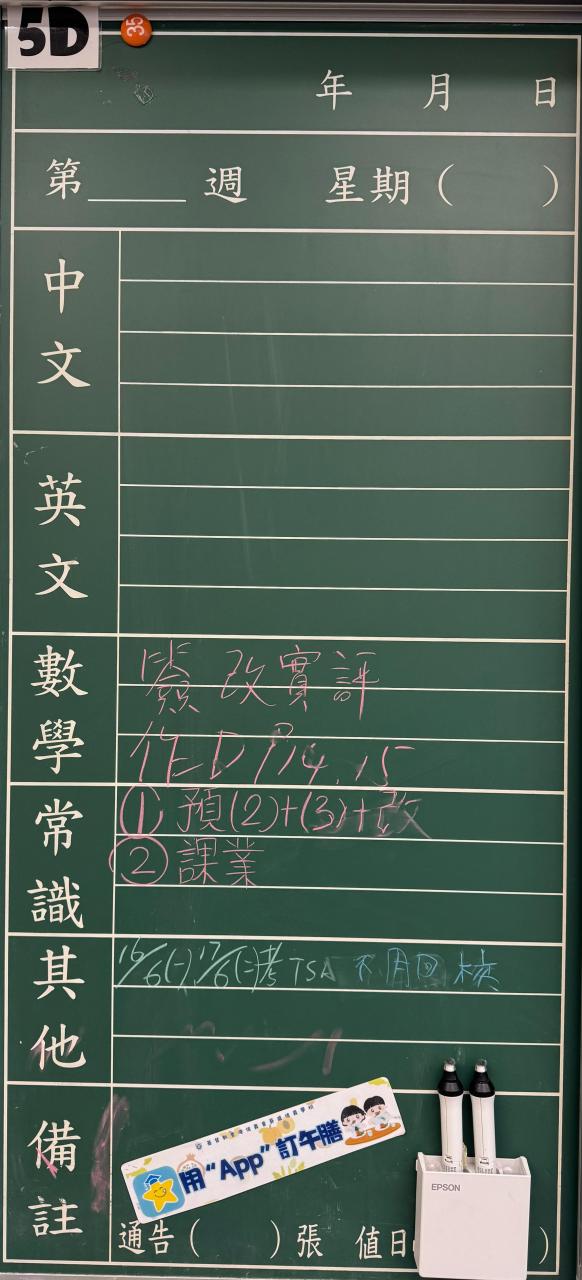 5D
35
年 月 日
第 週 星期( )
中文
英文
數學
改實評
作D P14, 15
常識
① 預(2)+(3)+改
② 課業
其他
16/6(一), 17/6(二)考TSA 不用回校
備註
用“App”訂午膳
EPSON
通告( )張 值日 )